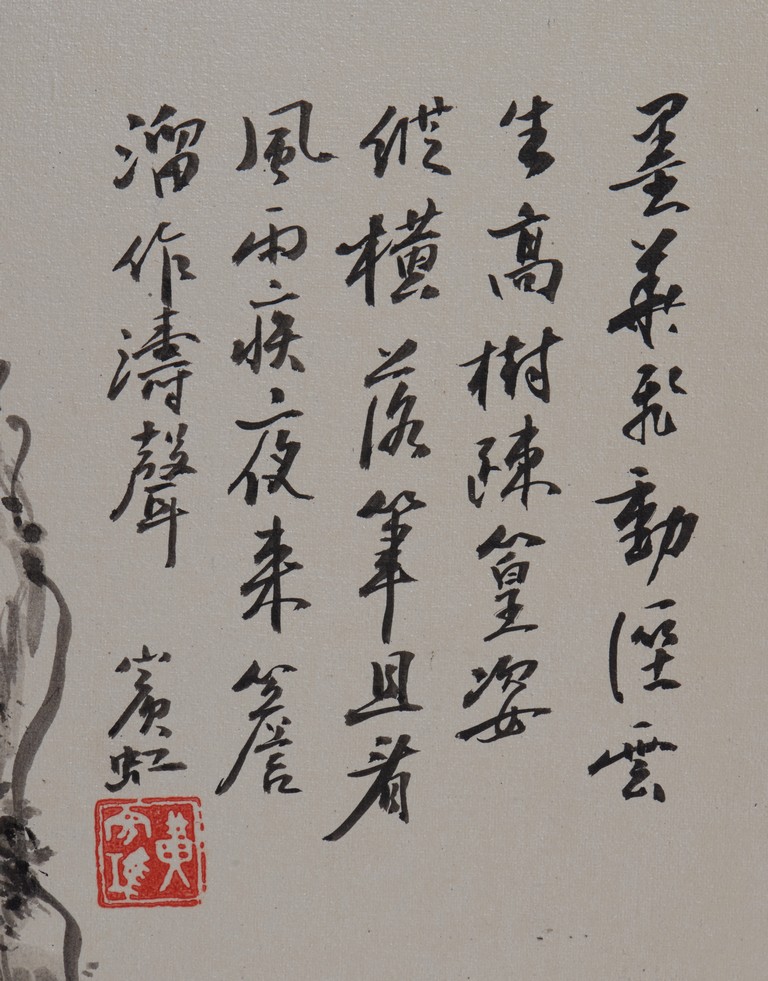 墨華飛動徑雲
生高樹疎篁姿
縱橫落筆且看
風雨疾夜來簷
溜作濤聲
賓虹
黃賓虹